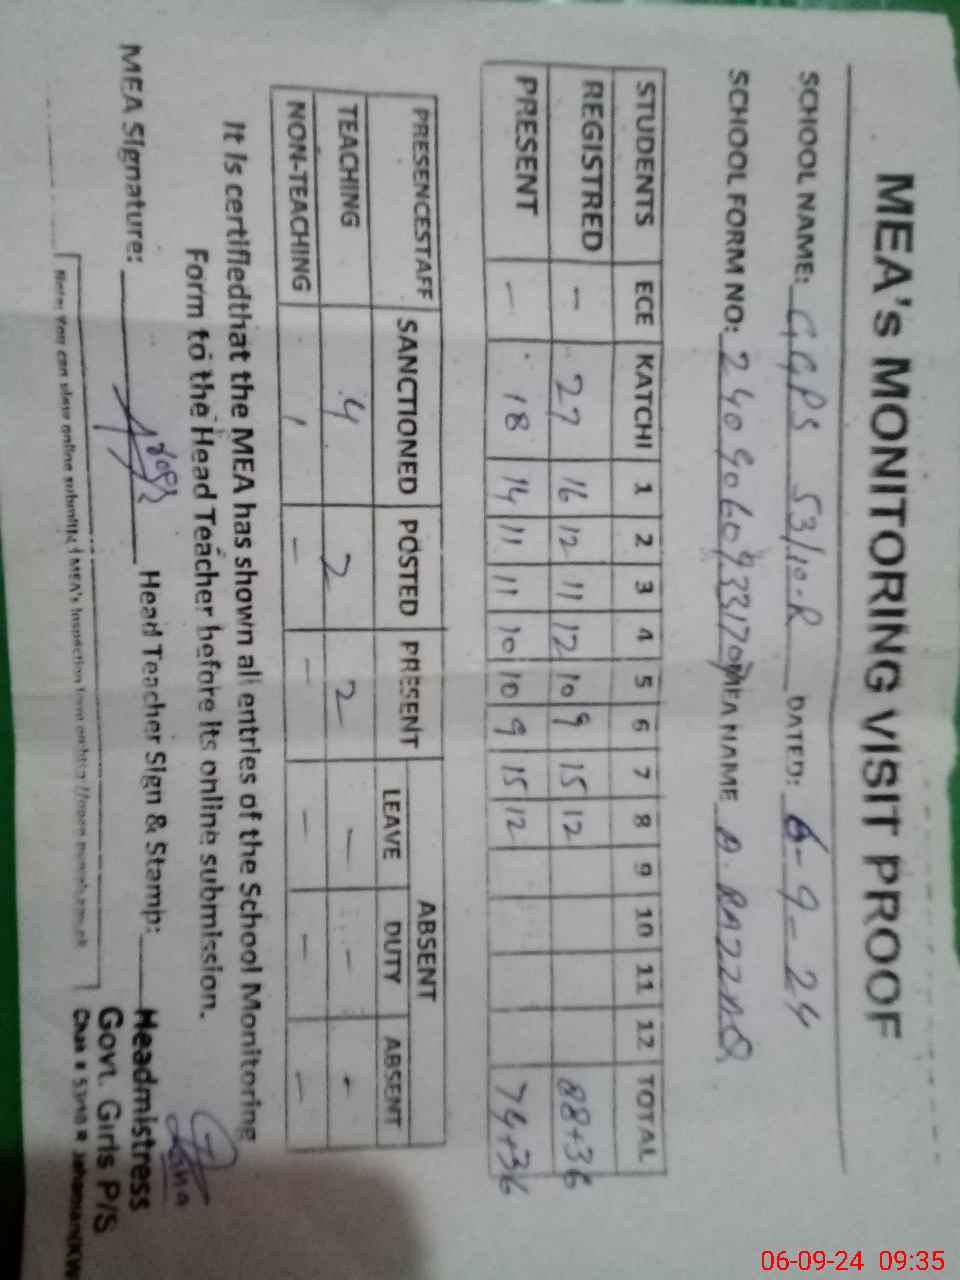 MEA's MONITORING VISIT PROOF
SCHOOL NAME: GGPS 53/10-R DATED: 6-9-24
SCHOOL FORM NO: MEA NAME A. RAZZAQ
STUDENTS ECE KATCHI 1 2 3 4 5 6 7 8 9 10 11 12 TOTAL
REGISTRED - 27 16 12 11 12 10 9 15 12 88+36
PRESENT - 18 14 11 11 10 10 9 15 12 74+36
PRESENCESTAFF SANCTIONED POSTED PRESENT ABSENT
LEAVE DUTY ABSENT
TEACHING 4 2 2 - - -
NON-TEACHING - - - - -
It is certifiedthat the MEA has shown all entries of the School Monitoring
Form to the Head Teacher before its online submission.
MEA Signature: Head Teacher Sign & Stamp:
Headmistress
Govt. Girls P/S
Note: You can view online submitted MEA's Inspection form on
06-09-24 09:35